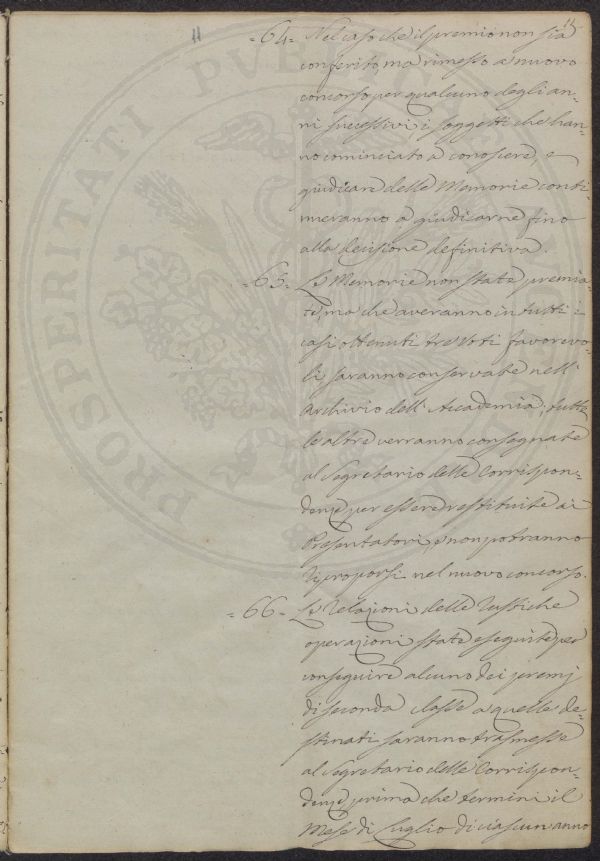 11
11
=64= Nel caso che il premio non sia
conferito, ma rimesso a nuovo
concorso per qualcuno degli an=
ni successivi, i soggetti che han=
no cominciato a conoscere, e
giudicare delle Memorie conti=
nueranno a giudicarne fino
alla decisione definitiva.
=65= Le Memorie non state premia=
te, ma che averanno in tutti i
casi ottenuti tre Voti favorevo=
li saranno conservate nell'
Archivio dell'Accademia; tutte
le altre verranno consegnate
al Segretario delle Corrispon=
denze per essere restituite ai
Presentatori, e non potranno
riproporsi nel nuovo concorso.
=66= Le relazioni delle rustiche
operazioni state eseguite per
conseguire alcuno dei premj
di seconda classe a quelle de=
stinati saranno trasmesse
al Segretario delle Corrispon=
denze prima che termini il
Mese di Luglio di ciascun anno
PROSPERITATI PUBLICAE